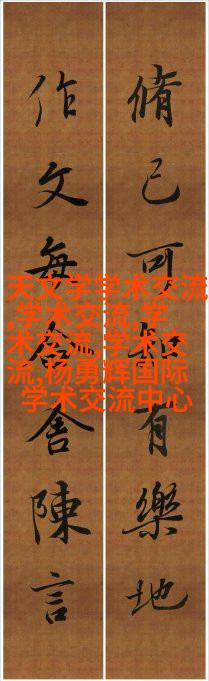 脩己可知有樂地
作文每舍陳言
天文学学术交流
,学术交流,学
术交流,学术交
流,杨勇辉国际
学术交流中心